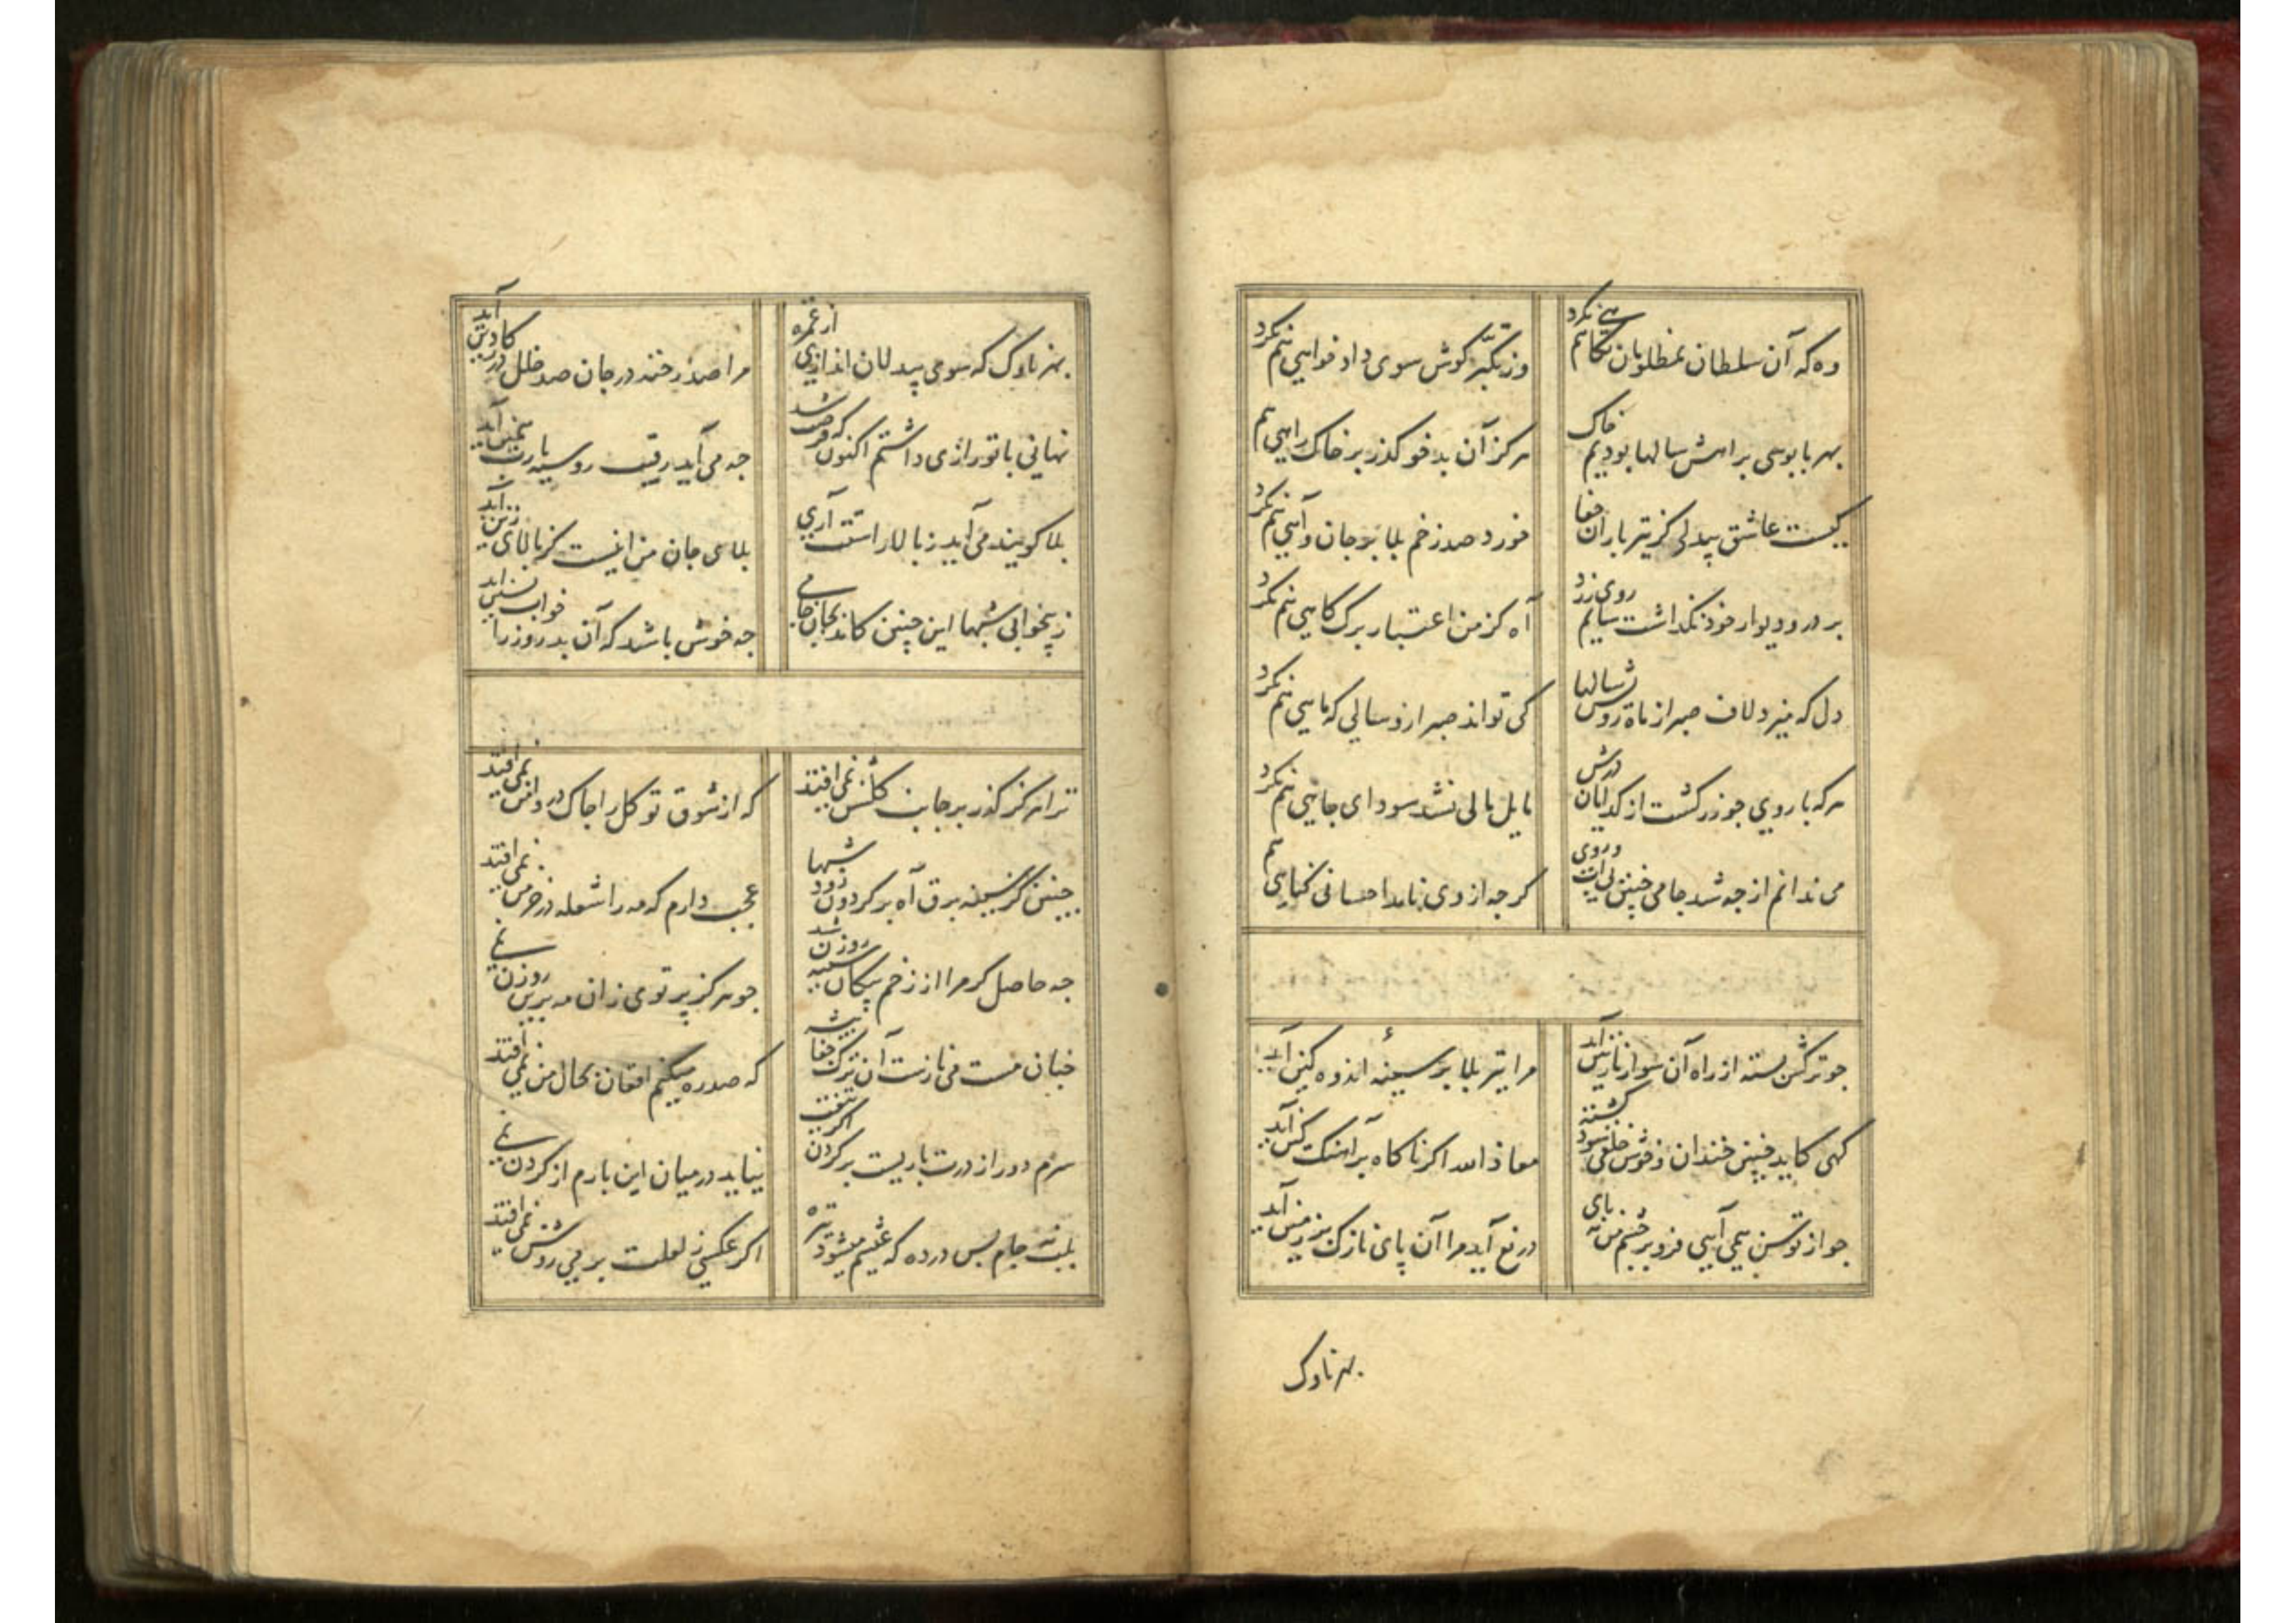 وه که آن سلطان بمظلومان نگاهی هم نکرد
وز تکبّر کوش سوی داد خواهی هم نکرد
بهر پابوسی براهش سالها بودیم خاک
هرکز آن بدخو کذر بر خاک راهی هم نکرد
کیست عاشق بیدلی کز تیر باران جفا
خورد صد زخم بلا بر جان و آهی هم نکرد
بر در و دیوار خود نکذاشت سایم روی زرد
آه کز من اعتبار برک کاهی هم نکرد
دل که میزد لاف صبر از ماه رویش سالها
کی تواند صبر ازو سالی که ماهی هم نکرد
هرکه با رویی چو زر کشت از کدایان درش
مایل مالی نشد سودای جاهی هم نکرد
می ندانم از چه شد جامی چنین بی آب و روی
کرچه از وی ناید احسانی کناهی هم
چو ترکش بسته از راه آن سوار نازنین آید
مرا تیر بلا بر سینهٔ اندوهکین آید
کهی کاید چنین خندان و خوش خلقی شود کشته
معاذ الله اکر ناکاه بر آهنک کین آید
چو از توسن همی آیی فرو بر چشم من نه پای
دریغ آید مرا آن پای نازک بر زمین آید
بهر ناوک
بهر ناوک که سوی بیدلان اندازی از غمزه
مرا صد رخنه در جان صد خلل در کار دین آید
نهانی با تو رازی داشتم اکنون که فرصت شد
چه می آید رقیب روسیه یا رب همین آید
بلا کویند می آید ز بالا راست است آری
بلای جان من اینست کز بالای زین آید
ز بیخوابی شبها این چنین کاند بجان جامی
چه خوش باشد که آن بدروز را خواب پسین آید
ترا هرکز کذر بر جانب کلشن نمی افتد
که از شوق تو کل را چاک در دامن نمی افتد
چنین کز سینه برق آه بر کردون رود شبها
عجب دارم که مه را شعله در خرمن نمی افتد
چه حاصل کر مرا از زخم پیکان سینه روزن شد
چو هرکز پرتوی زان مه برین روزن نمی
چنان مست می نازست آن ترک جفا پیشه
که صد ره میکنم افغان بحال من نمی افتد
سرم دور از درت باریست بر کردن اکر تیغت
نیاید در میان این بارم از کردن نمی
بلب نه جام پس در ده که عیشم میشود تیره
اکر عکسی ز لعلت بر می روشن نمی افتد